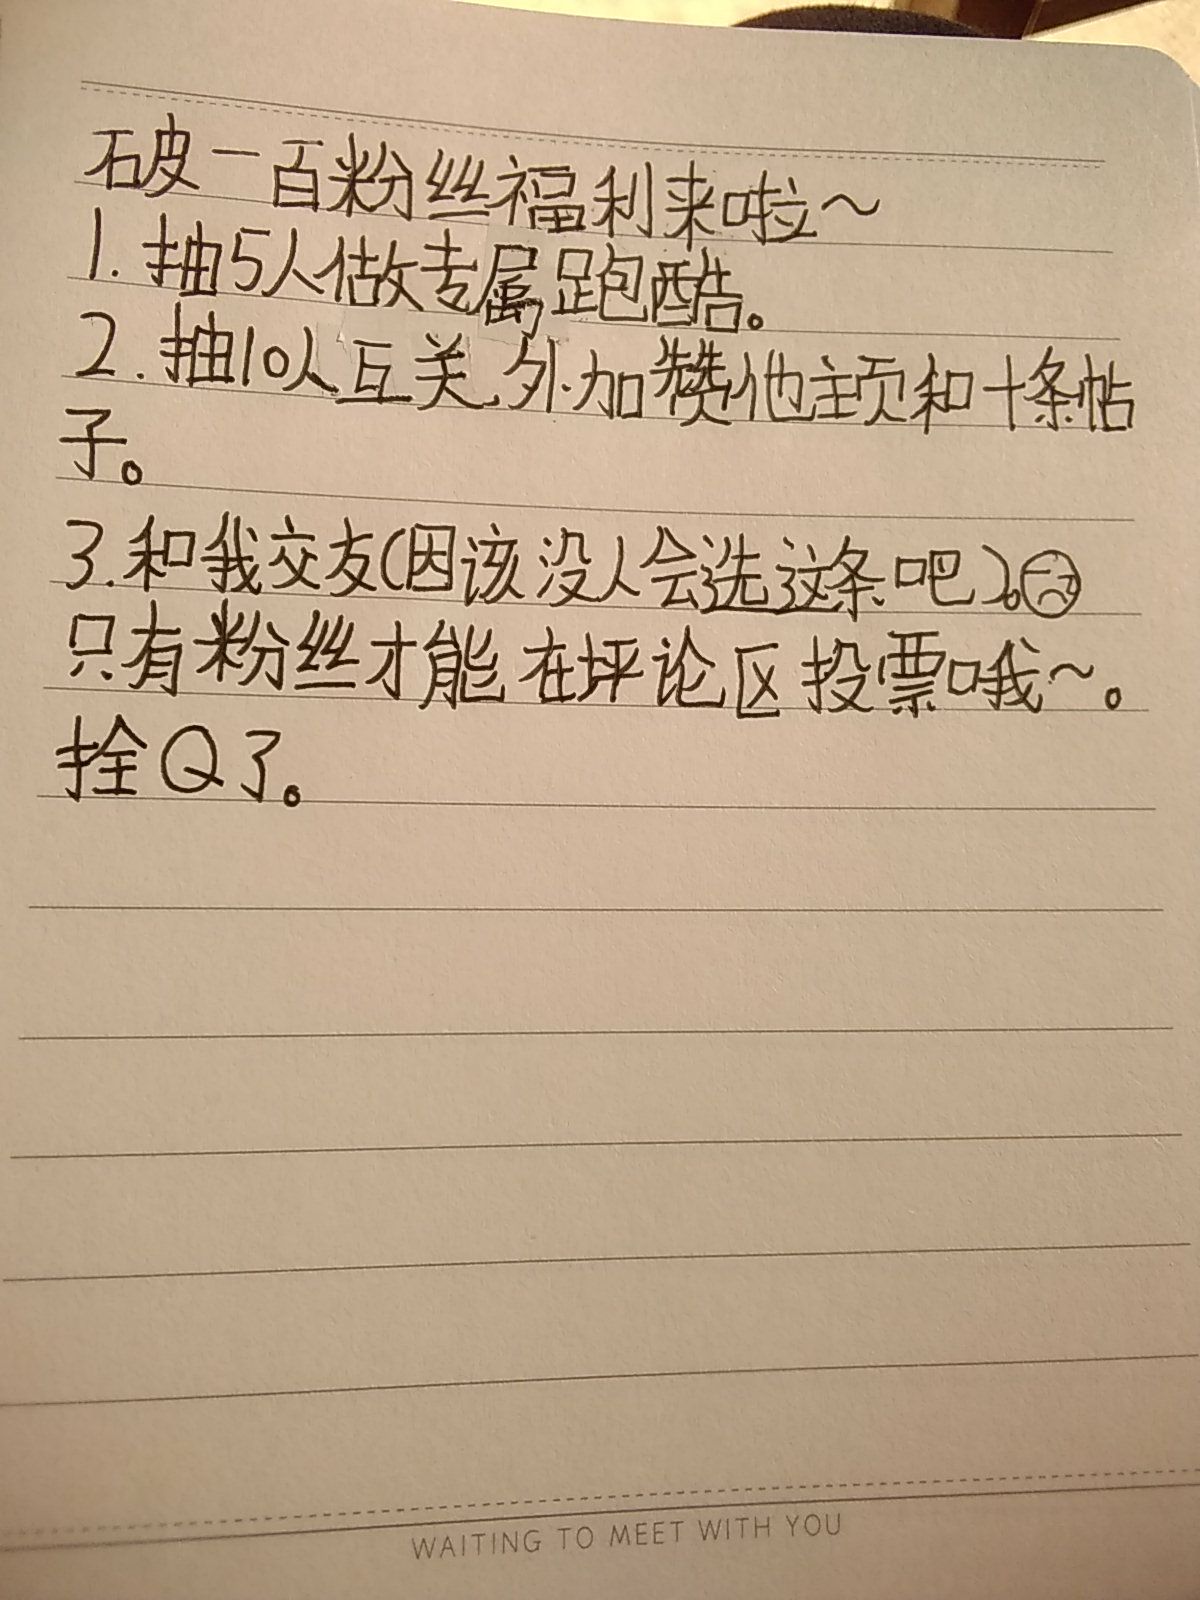 破一百粉丝福利来啦～
1.抽5人做专属跑酷。
2.抽10人互关,外加赞他主页和十条帖
子。
3.和我交友(因该没人会选这条吧)。
只有粉丝才能在坪论区投票哦～。
拴Q了。
WAITING TO MEET WITH YOU